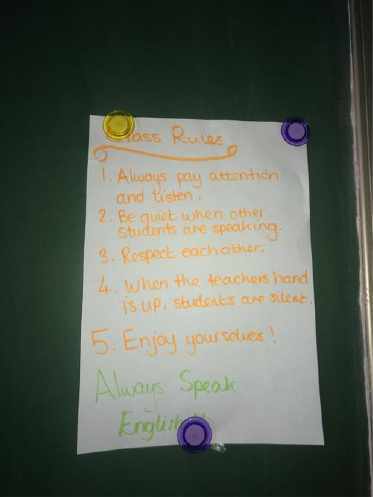 Class Rules
1. Always pay attention
and listen.
2. Be quiet when other
students are speaking.
3. Respect each other.
4. When the teachers hand
is up, students are silent.
5. Enjoy yourselves!
Always Speak
English